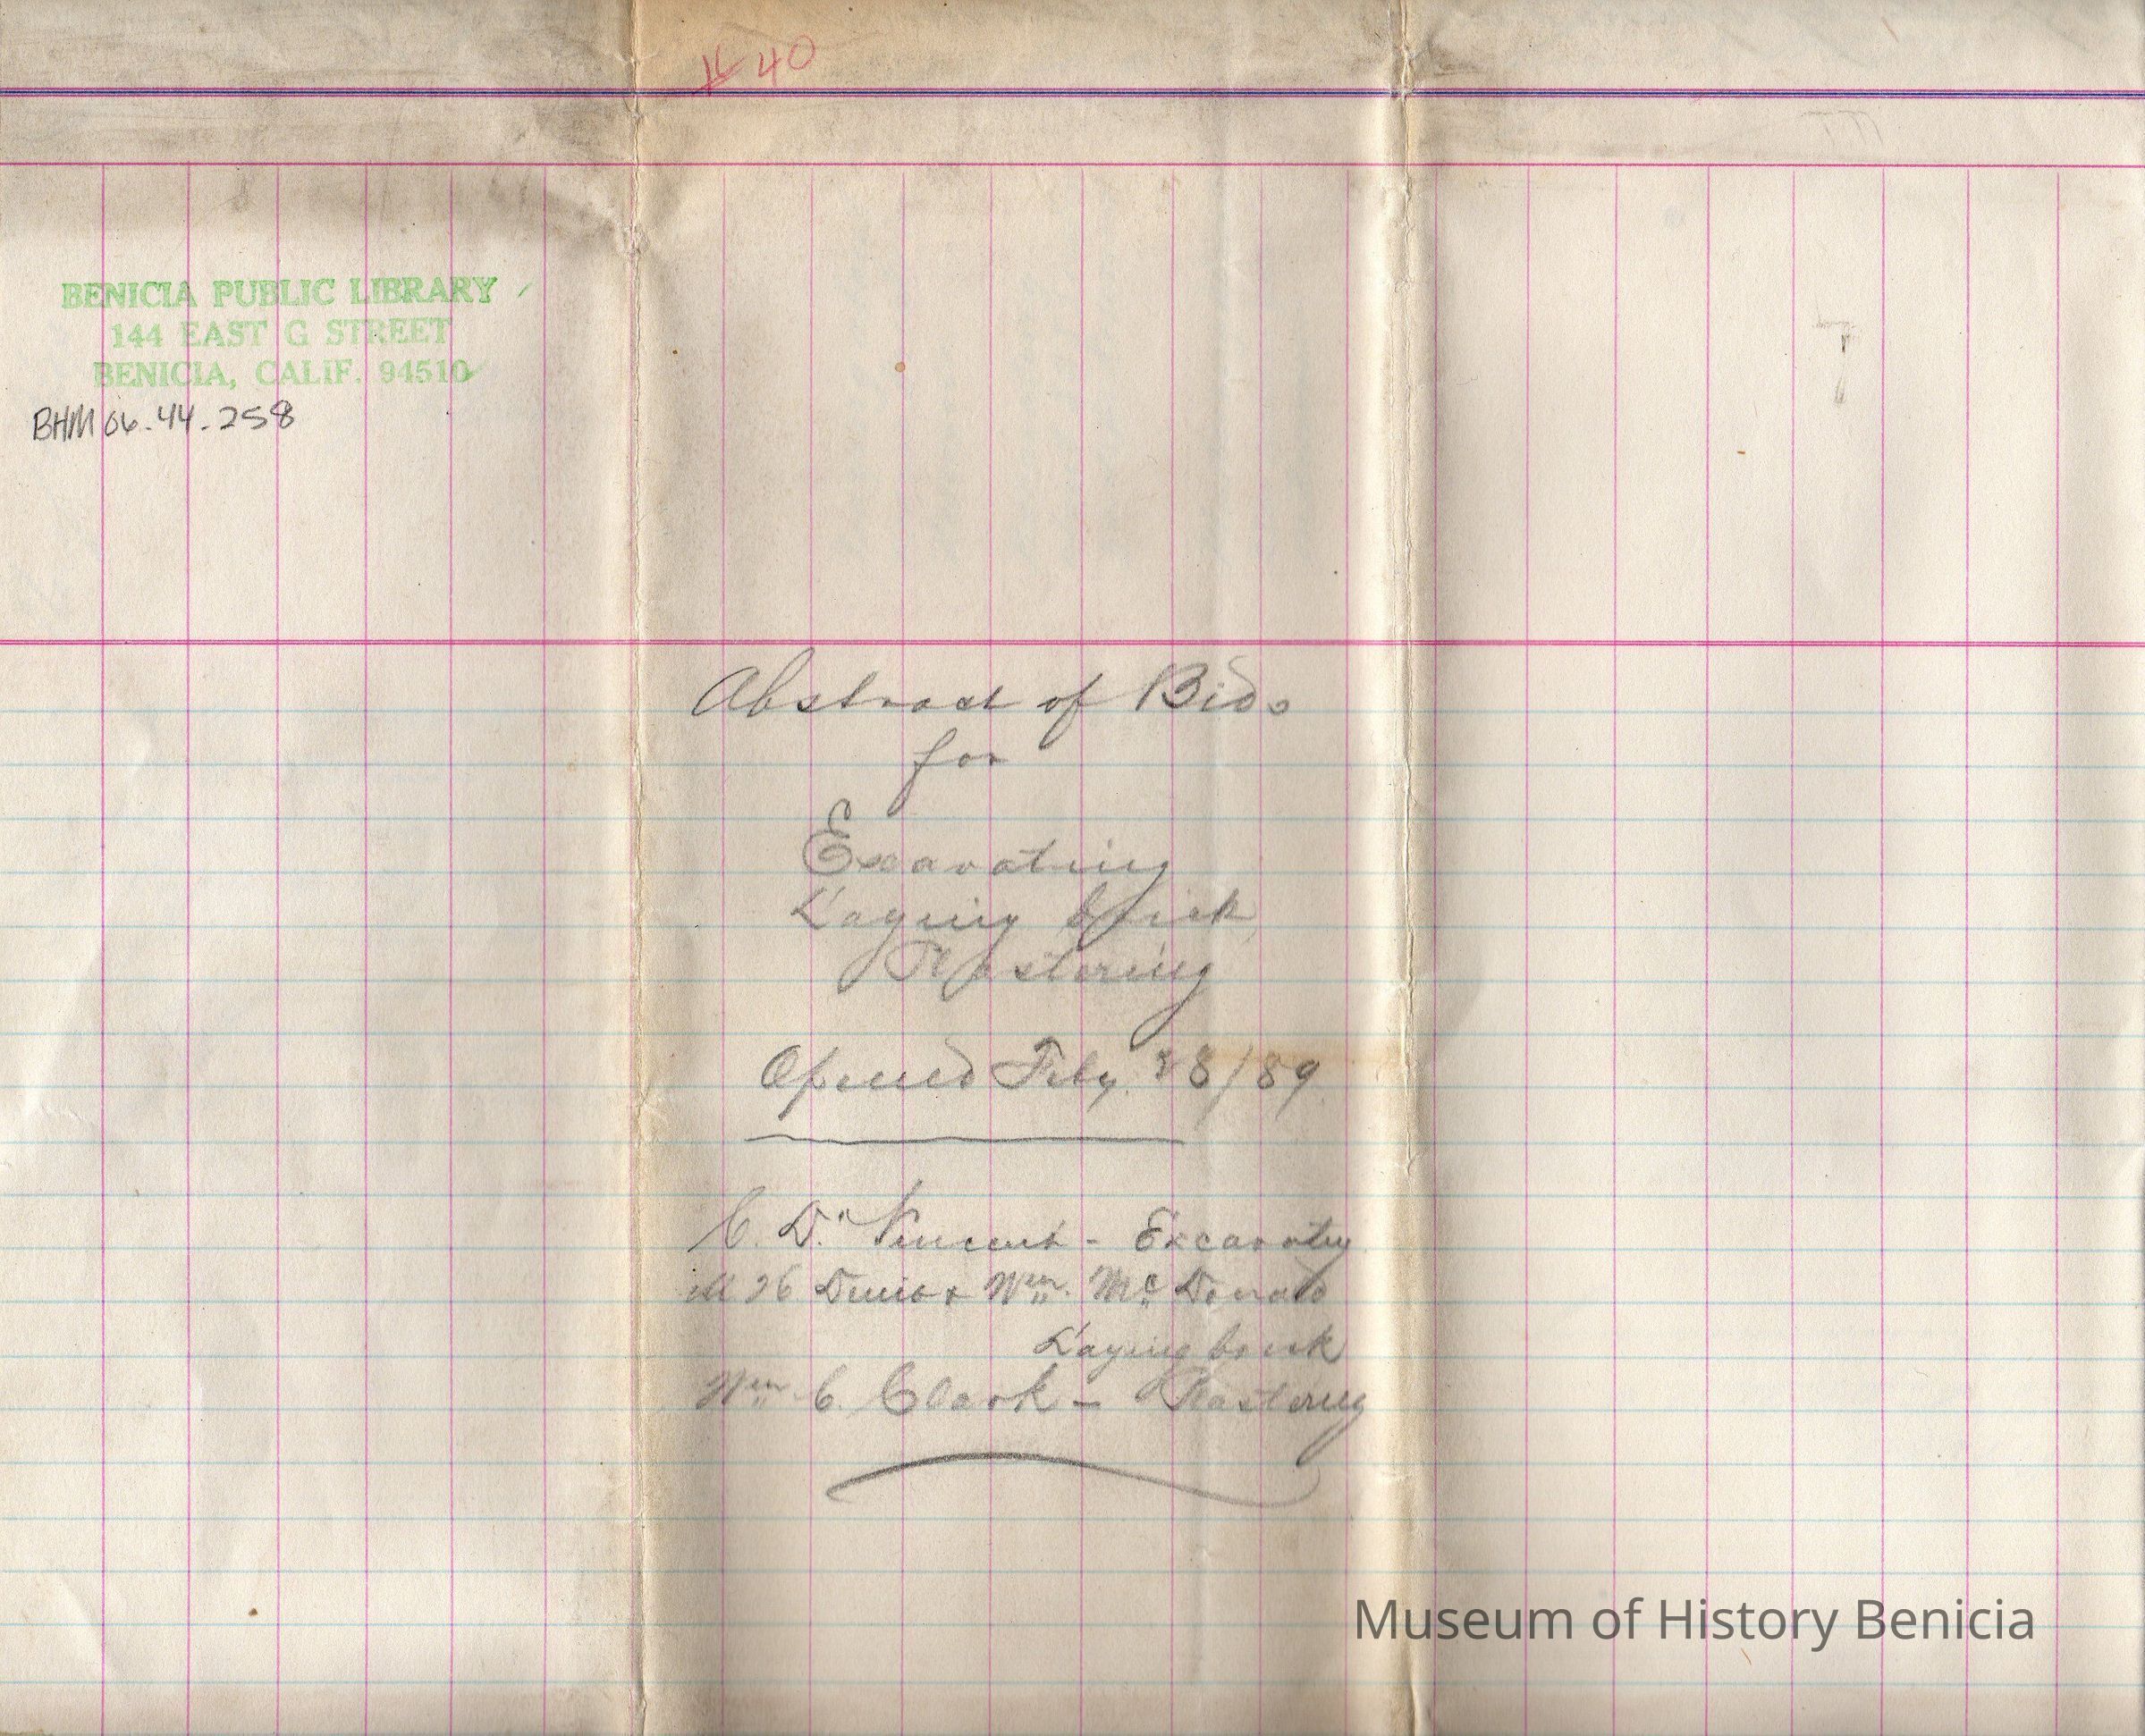 40
BENICIA PUBLIC LIBRARY
144 EAST G STREET
BENICIA, CALIF. 94510
BHM 06.44.258
Abstract of Bids
for
Excavating
Laying brick
Plastering
Opened Feby. 28/89
C. D. Vincent - Excavatg
Wm. McDonald
Laying brick
Wm C. Clark - Plastering
Museum of History Benicia